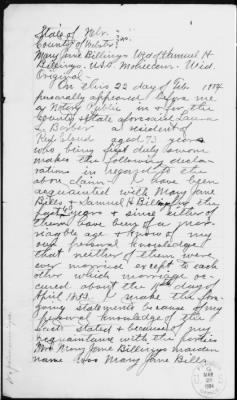 State of Nebr. } ss.
County of Webster }
Mary Jane Billings Wid of Samuel H
Billings. Wid.
Original -
On this 22 day of Feb. 1884
personally appeared before me
a Notary Public in & for the
County & State aforesaid Laura
L. Barber a resident of
Red Cloud aged 73 years
who being first duly sworn
makes the following decla
rations in regard to the
above claim. I have been
acquainted with Mary Jane
Bills & Samuel H Billings for the
last years & since either of
them have been of a mar
riageable age & know of my
own personal knowledge
that neither of them were
ever married except to each
other which marriage oc
cured about the day of
April 1853. I make the for
going statements because of my
personal knowledge of the
facts stated & because of my
acquaintance with the parties
Mrs Mary Jane Billings maiden
name was Mary Jane Bills
MAR
1884